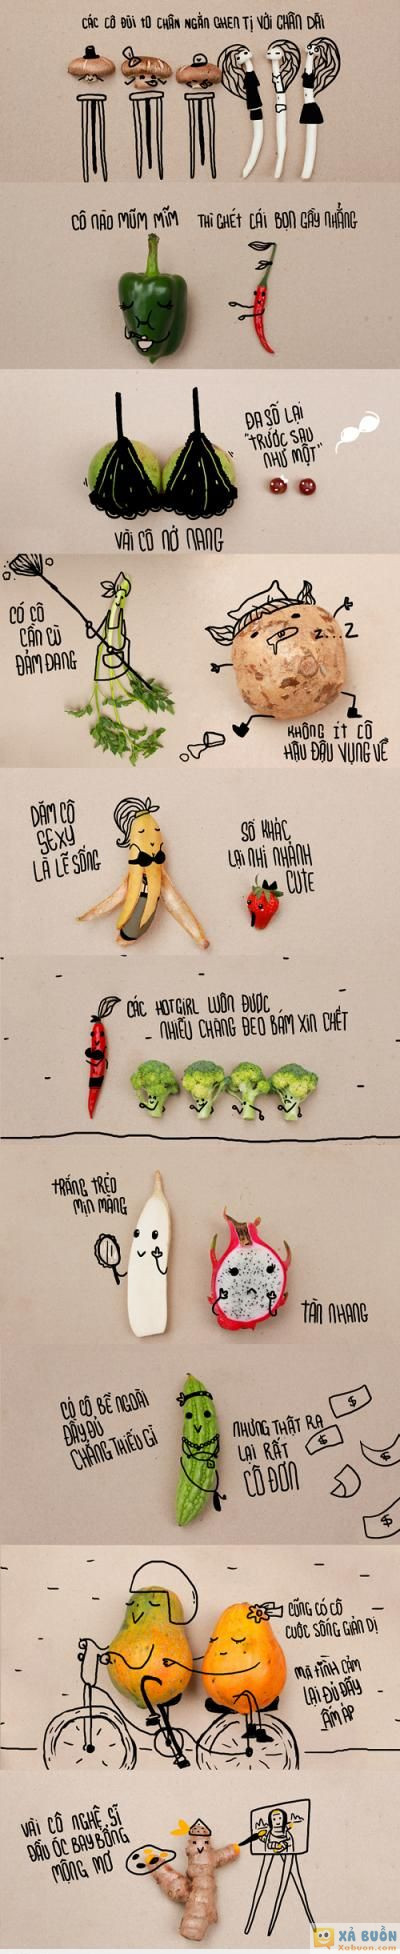 CÁC CÔ ĐÙI TO CHÂN NGẮN GHEN TỊ VỚI CHÂN DÀI
CÔ NÀO MŨM MĨM
THÌ GHÉT CÁI BỌN GẦY NHẲNG
ĐA SỐ LẠI
"TRƯỚC SAU
NHƯ MỘT"
VÀI CÔ NỞ NANG
CÓ CÔ
CẦN CÙ
ĐẢM ĐANG
Z...Z
KHÔNG ÍT CÔ
HẬU ĐẬU VỤNG VỀ
DĂM CÔ
SEXY
LÀ LẼ SỐNG
SỐ KHÁC
LẠI NHÍ NHẢNH
CUTE
CÁC HOTGIRL LUÔN ĐƯỢC
NHIỀU CHÀNG ĐEO BÁM XIN CHẾT
TRẮNG TRẺO
MỊN MÀNG
TÀN NHANG
CÓ CÔ BỀ NGOÀI
ĐẦY ĐỦ
CHẲNG THIẾU GÌ
NHƯNG THẬT RA
LẠI RẤT
CÔ ĐƠN
$
$
$
$
CŨNG CÓ CÔ
CUỘC SỐNG GIẢN DỊ
MÀ TÌNH CẢM
LẠI ĐỦ ĐẦY
ẤM ÁP
VÀI CÔ NGHỆ SĨ
ĐẦU ÓC BAY BỔNG
MỘNG MƠ
XẢ BUỒN
Xabuon.com